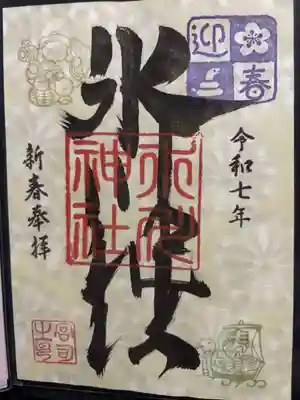 迎春
令和七年
氷川社
氷川神社
新春奉拝
宮司之印